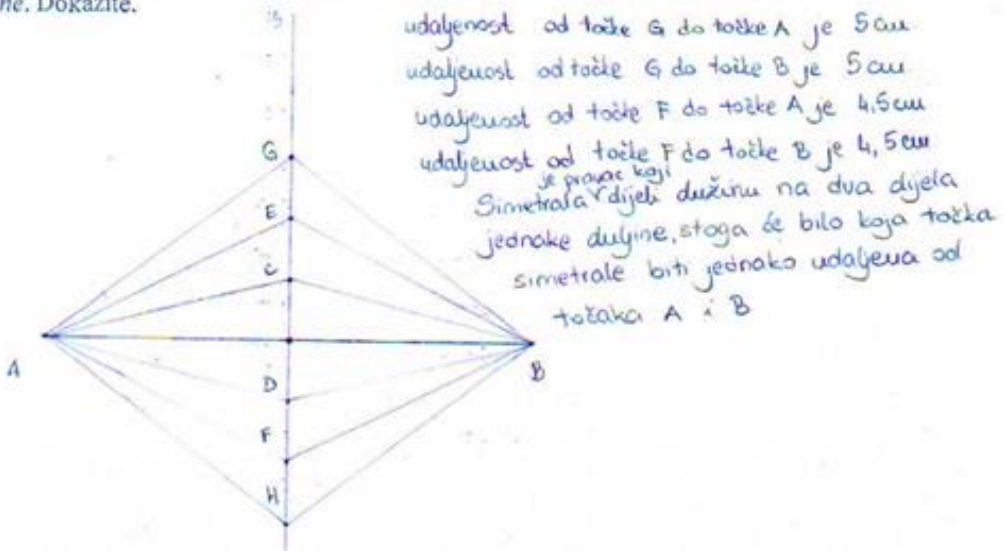 ne. Dokažite.
udaljenost od točke G do točke A je 5cm
udaljenost od točke G do točke B je 5 cm
udaljenost od točke F do točke A je 4,5cm
udaljenost od točke F do točke B je 4,5cm
je pravac koji
Simetrala dijeli dužinu na dva dijela
jednake duljine, stoga će bilo koja točka
simetrale biti jednako udaljena od
točaka A i B
G
E
C
A
B
D
F
H